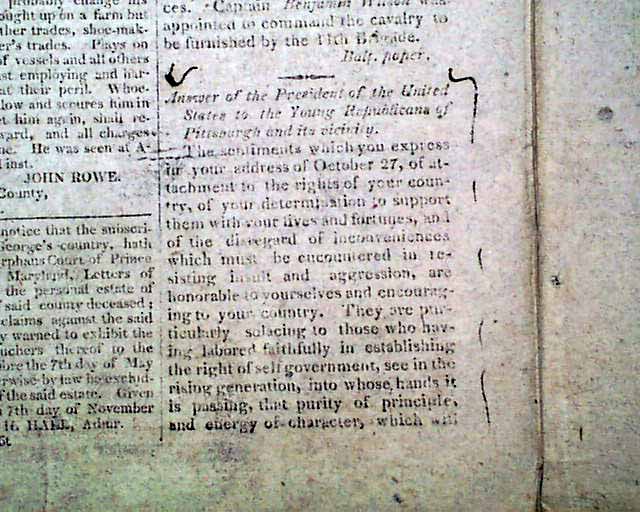 probably change his
ought up on a farm but
ther trades, shoe-mak-
er's trades. Plays on
of vessels and all others
st employing and har-
at their peril. Whoe-
low and secures him in
et him again, shall re-
ward, and all charges
ne. He was seen at A-
inst.
JOHN ROWE.
County,
notice that the subscri-
George's county, hath
rphans Court of Prince
Maryland, Letters of
the personal estate of
said county deceased;
claims against the said
y warned to exhibit the
uchers thereof to the
ore the 7th day of May
rwise by law be exclud-
f the said estate. Given
7th day of November
H. HALL, Admr.
6t
ces. Captain Benjamin Wilson was
appointed to command the cavalry to
be furnished by the 11th Brigade.
Balt. paper.
Answer of the President of the United
States to the Young Republicans of
Pittsburgh and its vicinity.
The sentiments which you express
in your address of October 27, of at-
tachment to the rights of your coun-
try, of your determination to support
them with your lives and fortunes, and
of the disregard of inconveniences
which must be encountered in re-
sisting insult and aggression, are
honorable to yourselves and encourag-
ing to your country. They are par-
ticularly solacing to those who hav-
ing labored faithfully in establishing
the right of self government, see in the
rising generation, into whose hands it
is passing, that purity of principle,
and energy of character, which will